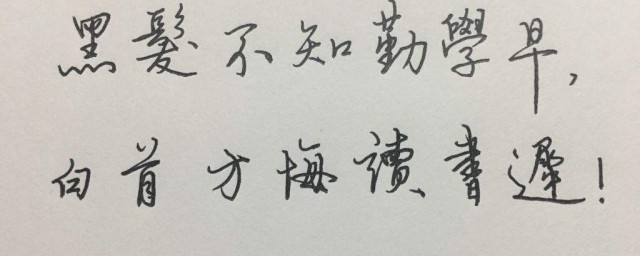 黑髮不知勤學早,
白首方悔讀書遲!